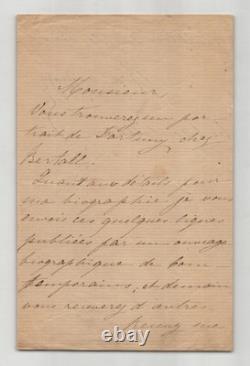 Monsieur,
Vous trouverez un por
trait de Fortuny chez
Bertall.
Quant aux détails pour
ma biographie je vous
envoie ces quelques lignes
publiées par un ouvrage
biographique de Con
temporains, et demain
vous recevrez d'autres